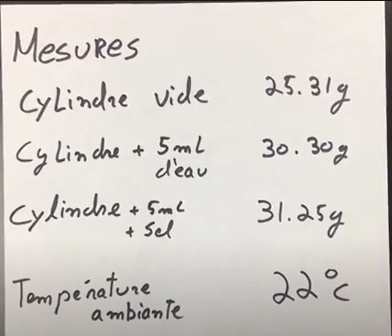 Mesures
Cylindre vide 25.31g
Cylindre + 5mL d'eau 30.30g
Cylindre + 5mL + sel 31.25g
Température ambiante 22°C